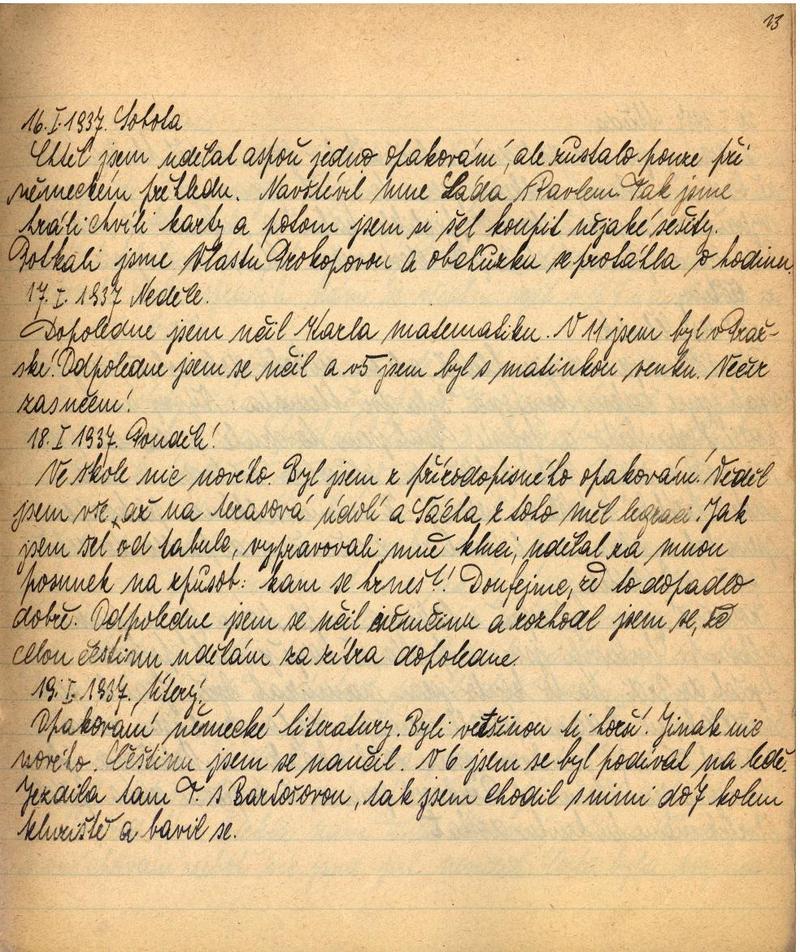 13
16.I.1937. Sobota
Chtěl jsem udělat aspoň jedno opakování, ale zůstalo pouze při
německém přehledu. Navštívil mne Láďa Pavlem. Tak jsme
hráli chvíli karty a potom jsem si šel koupit nějaké sešity.
Potkali jsme Vlastu Prokopovou a obchůzka se protáhla o hodinu.
17.I.1937 Neděle.
Dopoledne jsem učil Karla matematiku. V 11 jsem byl v Praž-
ské. Odpoledne jsem se učil a v 5 jsem byl s matinkou venku. Večer
zas učení!
18.I 1937. Pondělí!
Ve škole nic nového. Byl jsem z přírodopisného opakování. Věděl
jsem vše, až na terasová údolí a Tácha z toho měl legraci. Jak
jsem šel od tabule, vypravovali mně kluci, udělal za mnou
posunek na způsob: kam se hrneš!! Doufejme, že to dopadlo
dobře. Odpoledne jsem se učil němčinu a rozhodl jsem se, že
celou češtinu udělám za zítra dopoledne.
19.I.1937. Úterý.
Opakování německé literatury. Byli většinou ti horší. Jinak nic
nového. Češtinu jsem se naučil. V 6 jsem se byl podívat na ledě.
Jezdila tam T. s Bartošovou, tak jsem chodil s nimi do 7 kolem
kluziště a bavil se.